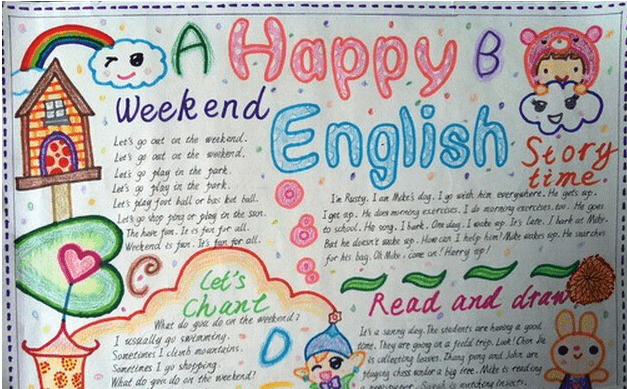 A Happy B
Weekend
English
Let's go out on the weekend.
Let's go out on the weekend.
Let's go play in the park.
Let's go play in the park.
Let's play foot ball or bas ket ball.
Let's go shop ping or play in the sun.
The have fun. It is fun for all.
Weekend is fun. It's fun for all.
Story
time.
I'm Rusty. I am Mike's dog. I go with him everywhere. He gets up.
I get up. He does morning exercises. I do morning exercises, too. He goes
to school. He song. I bark. One day, I wake up. It's late. I bark at Mike.
But he doesn't wake up. How can I help him? Mike wakes up. He searches
for his bag. Oh Mike, come on! Harry up!
C
Let's
Chant
What do you do on the weekend?
I usually go swimming.
Sometimes I climb mountains.
Sometimes I go shopping.
What do you do on the weekend?
D
Read and draw
It's a sunny day. The students are having a good
time. They are going on a field trip. Look! Chen Jie
is collecting leaves. Zhang peng and John are
playing chess under a big tree. Mike is reading
a newspaper. Sarah is watching insects.